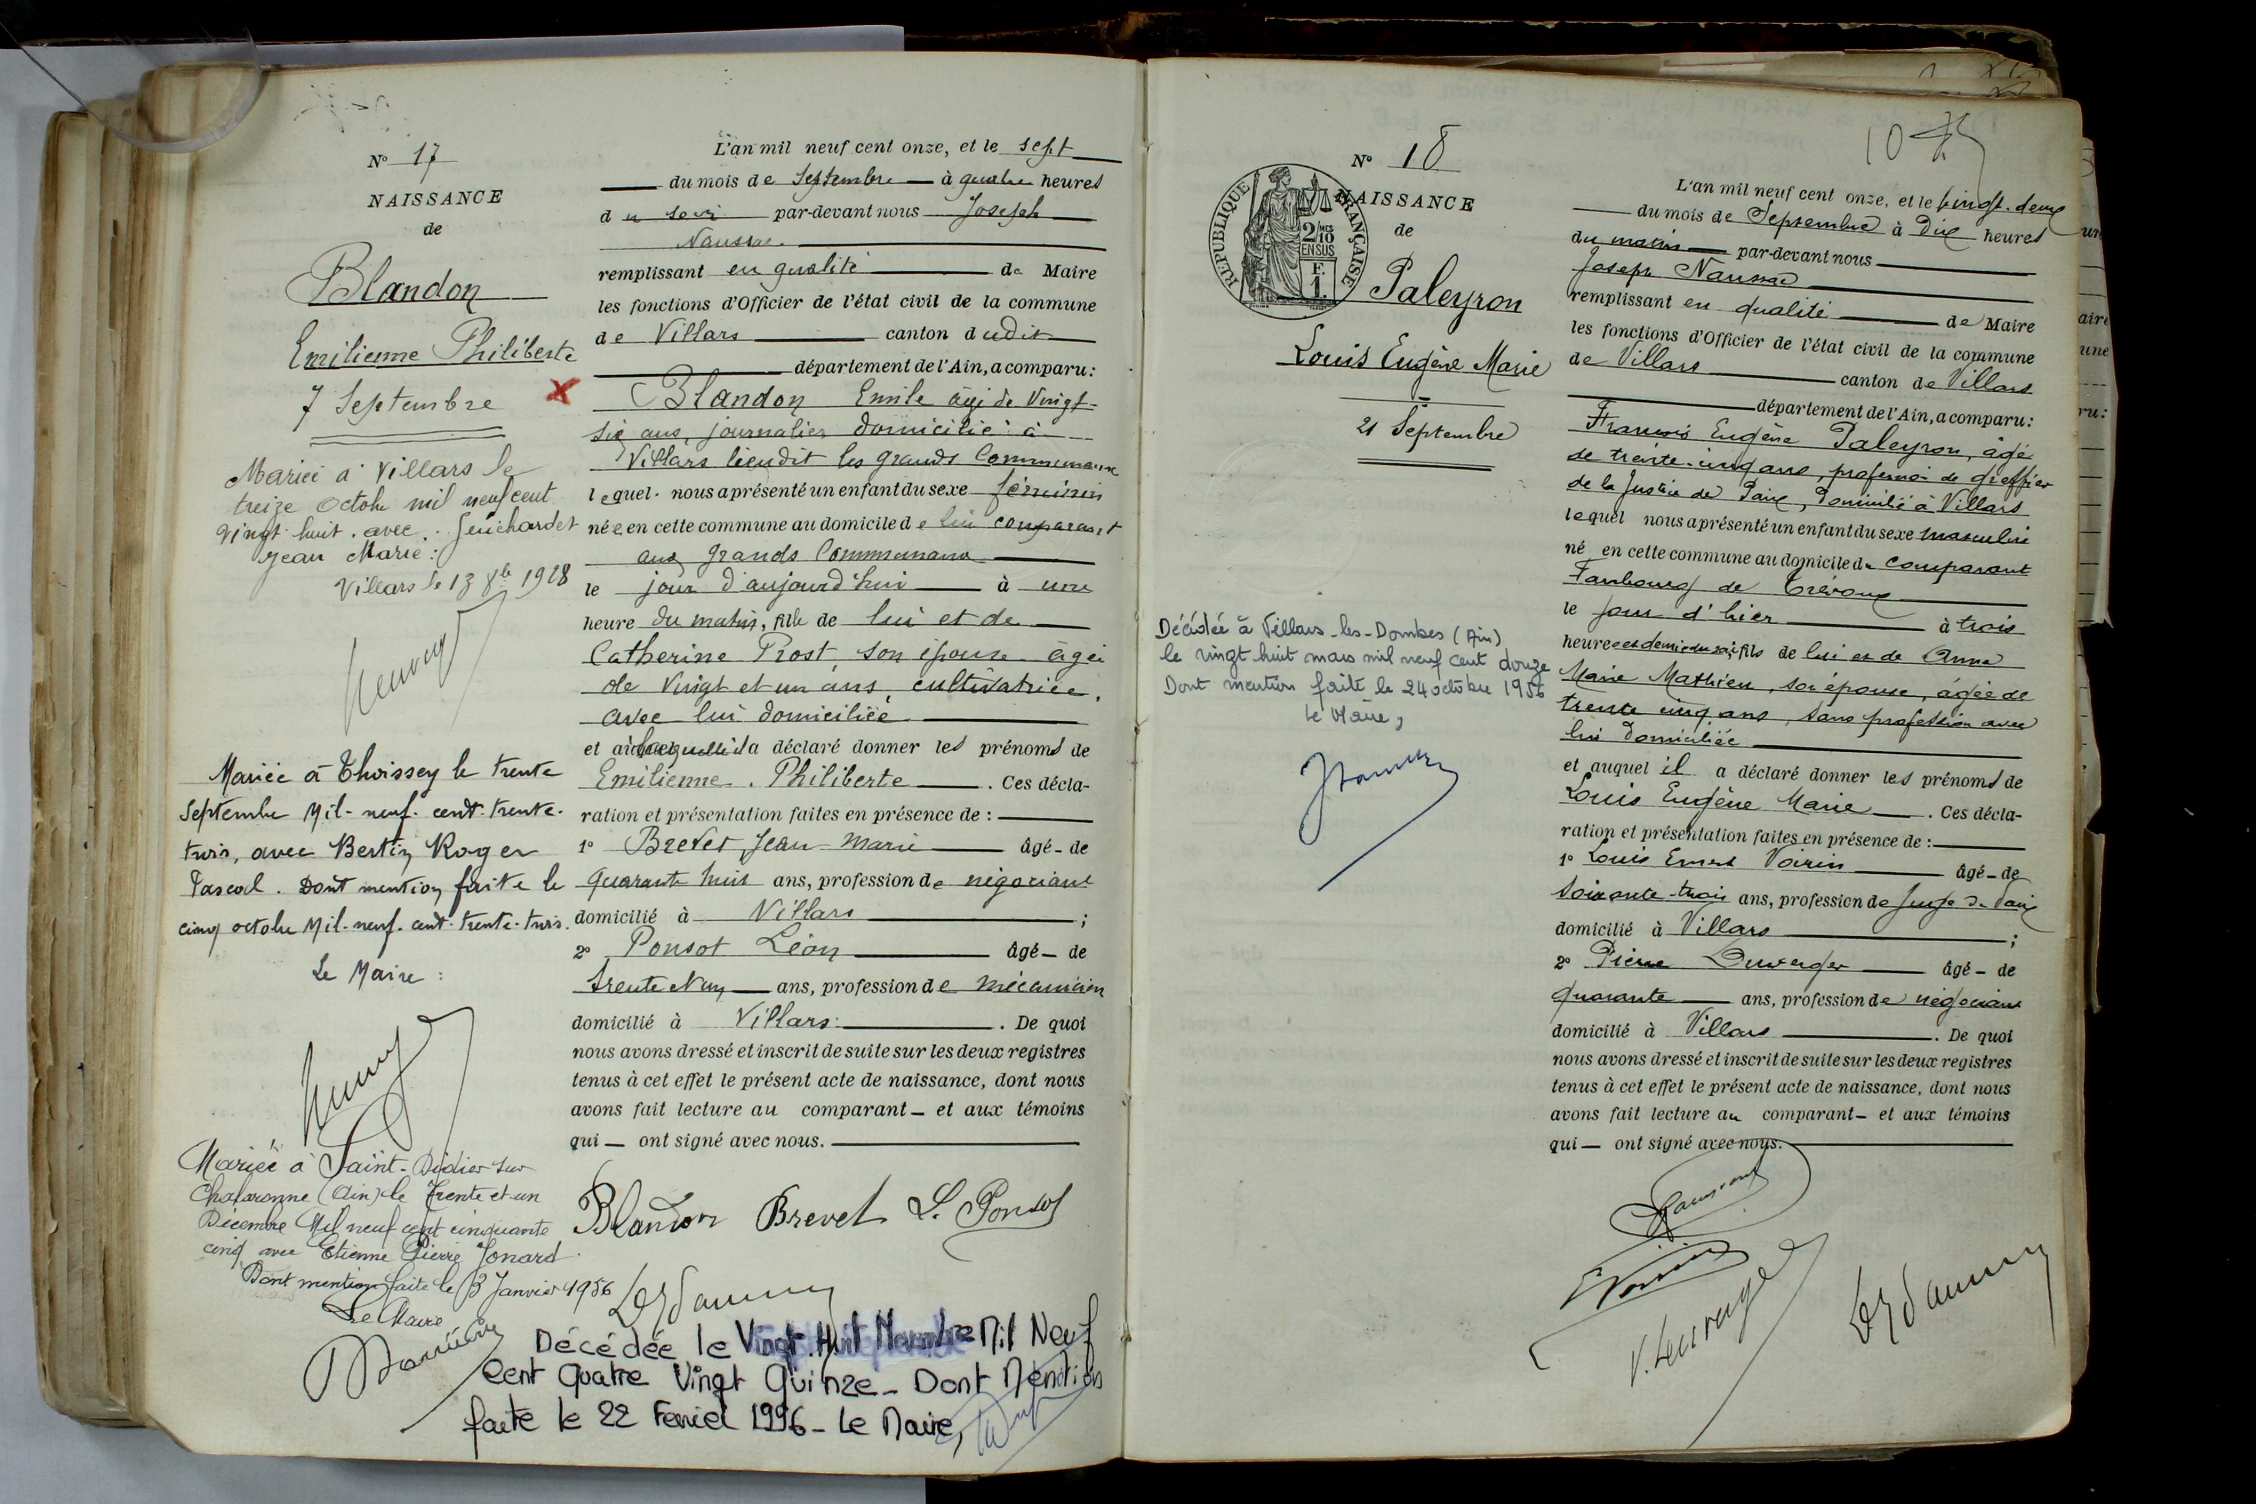 N° 17
NAISSANCE
de
Blandon
Emilienne Philiberte
7 Septembre
Mariée à Villars le
treize Octobre mil neuf cent
vingt huit. avec Guichardet
Jean Marie:
Villars le 13 8bre 1928
Mariée à Thoissey le trente
septembre Mil-neuf-cent-trente-
trois, avec Bertin Roger
Pascal. Dont mention faite le
cinq octobre Mil-neuf-cent-trente-trois.
Le Maire:
Mariée à Saint-Didier sur
Chalaronne (Ain) le trente et un
Décembre Mil neuf cent cinquante
cinq avec Etienne Pierre Jonard
Dont mention faite le 3 Janvier 1956
Le Maire
L'an mil neuf cent onze, et le sept
du mois de Septembre à quatre heures
du soir par-devant nous Joseph
remplissant en qualité de Maire
les fonctions d'Officier de l'état civil de la commune
de Villars canton dudit
département de l'Ain, a comparu:
Blandon Emile âgé de Vingt-
six ans, journalier domicilié à
Villars lieudit les grands Communaux
lequel nous a présenté un enfant du sexe féminin
née en cette commune au domicile de lui comparant
aux grands Communaux
le jour d'aujourd'hui à une
heure du matin, fille de lui et de
Catherine Prost son épouse âgée
de Vingt et un ans, cultivatrice,
avec lui domiciliée
et à laquelle il a déclaré donner les prénoms de
Emilienne. Philiberte. Ces décla-
ration et présentation faites en présence de:
1° Brevet Jean-Marie âgé de
quarante huit ans, profession de négociant
domicilié à Villars;
2° Ponsot Léon âgé de
trente et un ans, profession de mécanicien
domicilié à Villars. De quoi
nous avons dressé et inscrit de suite sur les deux registres
tenus à cet effet le présent acte de naissance, dont nous
avons fait lecture au comparant et aux témoins
qui ont signé avec nous.
Blandon Brevet L. Ponsot
Décédée le Vingt Huit Novembre Mil Neuf
Cent Quatre Vingt Quinze - Dont Mention
faite le 22 Février 1996 - Le Maire,
10
N° 18
NAISSANCE
de
REPUBLIQUE FRANÇAISE
2/10
EN SUS
F.
1.
Paleyron
Louis Eugène Marie
21 Septembre
Décédée à Villars-les-Dombes (Ain)
le vingt huit mars mil neuf cent douze
Dont mention faite le 24 octobre 1956
Le Maire,
L'an mil neuf cent onze, et le vingt-deux
du mois de Septembre à Dix heures
du matin par-devant nous
remplissant en qualité de Maire
les fonctions d'Officier de l'état civil de la commune
de Villars canton de Villars
département de l'Ain, a comparu:
François Eugène Paleyron, âgé
de trente-cinq ans, profession de greffier
de la Justice de Paix, Domicilié à Villars
lequel nous a présenté un enfant du sexe masculin
né en cette commune au domicile du comparant
Faubourg de Trévoux
le jour d'hier à trois
heures et demie du soir, fils de lui et de Anna
Marie Mathieu, son épouse, âgée de
trente cinq ans, sans profession avec
lui Domiciliée
et auquel il a déclaré donner les prénoms de
Louis Eugène Marie. Ces décla-
ration et présentation faites en présence de:
1° Louis Ernest Voirin âgé de
soixante-trois ans, profession de Juge de Paix
domicilié à Villars;
2° Pierre Duverger âgé de
quarante ans, profession de négociant
domicilié à Villars. De quoi
nous avons dressé et inscrit de suite sur les deux registres
tenus à cet effet le présent acte de naissance, dont nous
avons fait lecture au comparant et aux témoins
qui ont signé avec nous.